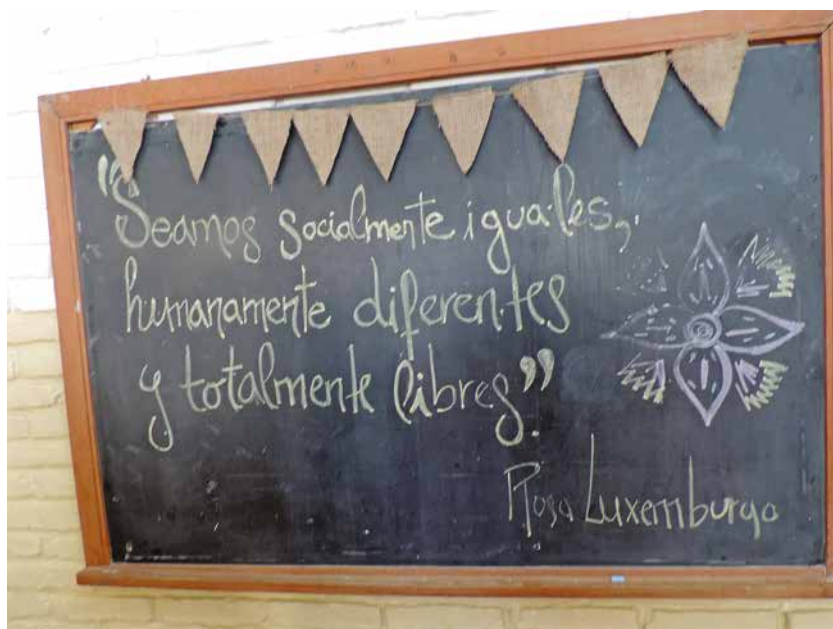 "Seamos socialmente iguales,
humanamente diferentes
y totalmente libres".
Rosa Luxemburgo